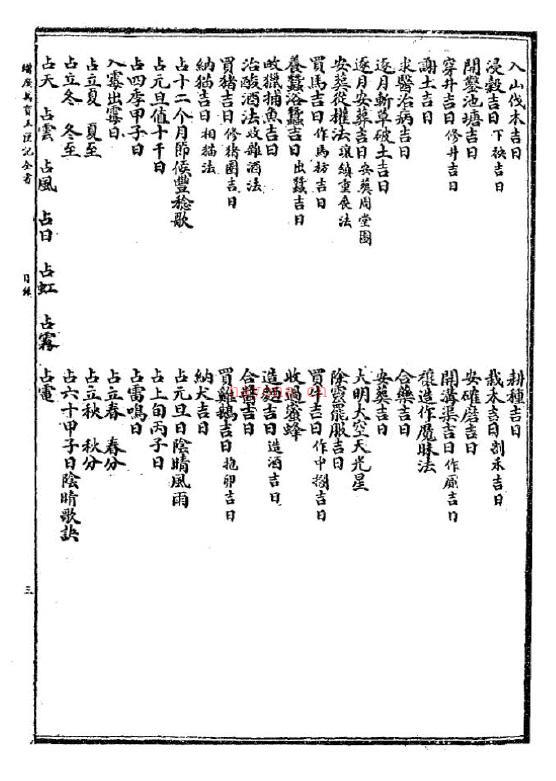 入山伐木吉日　耕種吉日
浸穀吉日 下秧吉日　栽禾吉日 割禾吉日
開鑿池塘吉日　安碓磨吉日
穿井吉日 修井吉日　開溝渠吉日 作廁吉日
謝土吉日　禳造作魘昧法
求醫治病吉日　合藥吉日
逐月斬草破土吉日　安葬吉日
逐月安葬吉日 安葬周堂圖　大明大空天光星
安葬從權法 禳鎮重喪法　除靈罷服吉日
買馬吉日 作馬枋吉日　買牛吉日 作牛欄吉日
養蠶浴蠶吉日 出蠶吉日　收過蜜蜂
畋獵捕魚吉日　造麯吉日 造酒吉日
治酸酒法 收雜酒法　合醬吉日
買豬吉日 修豬圈吉日　買雞鵝吉日 抱卵吉日
納猫吉日 相猫法　納犬吉日
占十二个月節候豐稔歌　占元旦日陰晴風雨
占元旦值十干日　占上旬丙子日
占四季甲子日　占雷鳴日
入霉出霉日　占立春　春分
占立夏　夏至　占立秋　秋分
占立冬　冬至　占六十甲子日陰晴歌訣
占天　占雲　占風　占日　占虹　占霧　占電
玉匣記全書　目錄　三